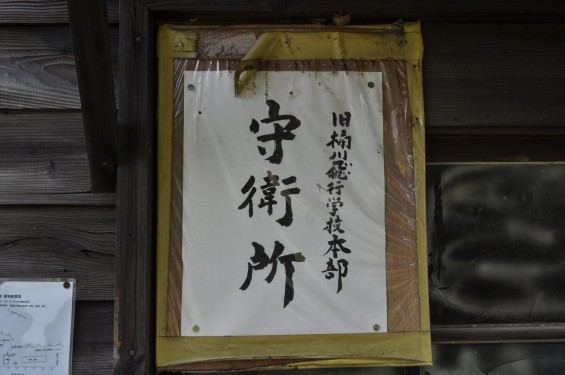 旧桶川飛行学校本部
守衛所